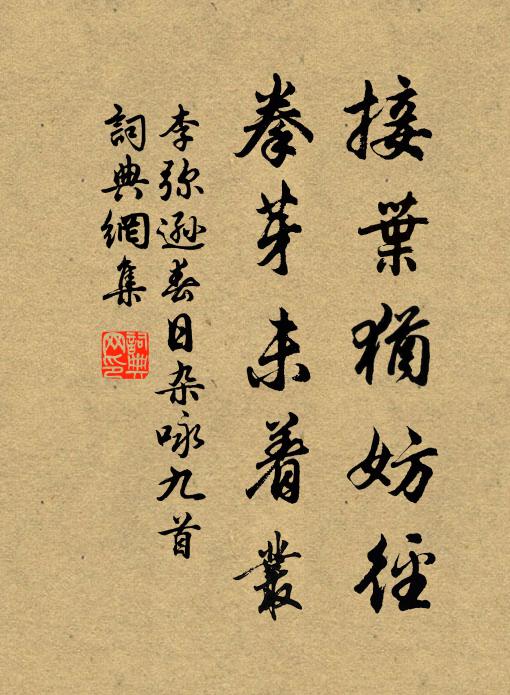 接葉猶妨徑
拳芽未着叢
李弥遜春日杂咏九首
詞典網集
詞典网印